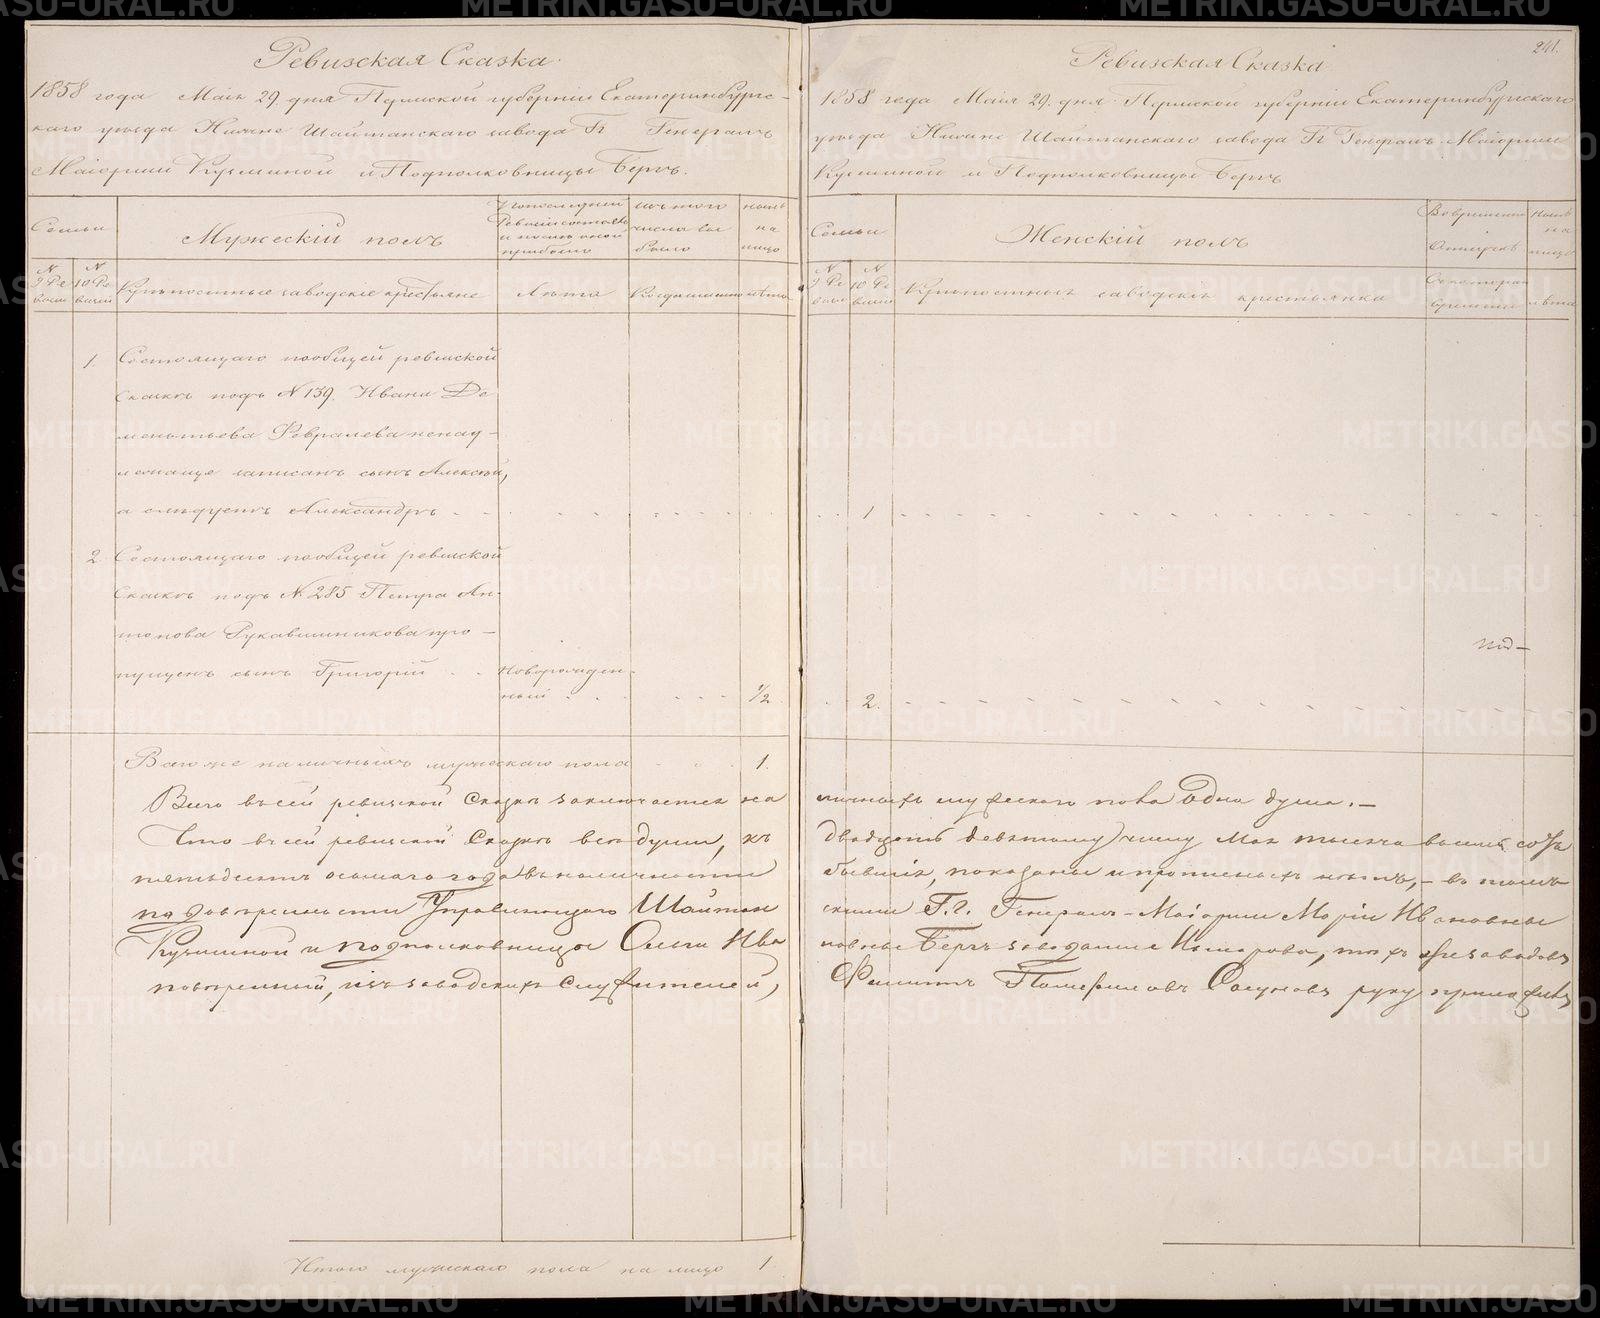 Ревизская Сказка.
1858 года Маія 29 дня Пермской губерніи Екатеринбургс-
каго уезда Нижне Шайтанскаго завода Гг Генералъ
Маіорши Кузминой и Подполковницы Бергъ.
Семьи
Мужескій полъ
По последней Ревизіи состояло и после оной прибыло
Изъ того числа выбыло
Ныне на лицо
№ 9 Ревизіи
№ 10 Ревизіи
Крепостные заводскіе крестьяне
Лета
Когда именно
лета
1. Состоящаго по общей ревизской
Сказке подъ № 139. Ивана Де
ментьева Февралева ненад-
лежаще записанъ сынъ Алексей,
а следуетъ Александръ
2. Состоящаго по общей ревизской
Сказке подъ № 285 Петра Ан-
тонова Рукавишникова про-
пущенъ сынъ Григорій
Новорожден-
ный
1/2
Всего же наличныхъ мужескаго пола 1.
Всего въ сей ревизской Сказке заключается на
Что въ сей ревизской Сказке все души, къ
пятьдесятъ осьмаго года въ наличности
по доверенности Управляющаго Шайтан
Кузминой и подполковницы Ольги Ива
поверенный, изъ заводскихъ Служителей,
Итого мужескаго пола на лицо 1
241.
Ревизская Сказка
1858 года Маія 29. дня Пермской губерніи Екатеринбургскаго
уезда Нижне Шайтанскаго завода Гг Генералъ Маіорши
Кузминой и Подполковницы Бергъ
Семьи
Женскій полъ
Во временной Отлучке
Ныне на лицо
№ 9 Ревизіи
№ 10 Ревизіи
Крепостныхъ заводскихъ крестьянка
Съ котораго времени
лета
1
под-
2.
личныхъ мужескаго пола Одна душа. -
двадцать девятому числу Мая тысяча восемь сотъ
бывшія, показаны и прописныхъ нетъ, - въ томъ
скими Г.г. Генералъ-Маіорши Маріи Ивановны
новны Бергъ заводами тохъ же заводовъ
Филиппъ Сосуновъ руку приложилъ